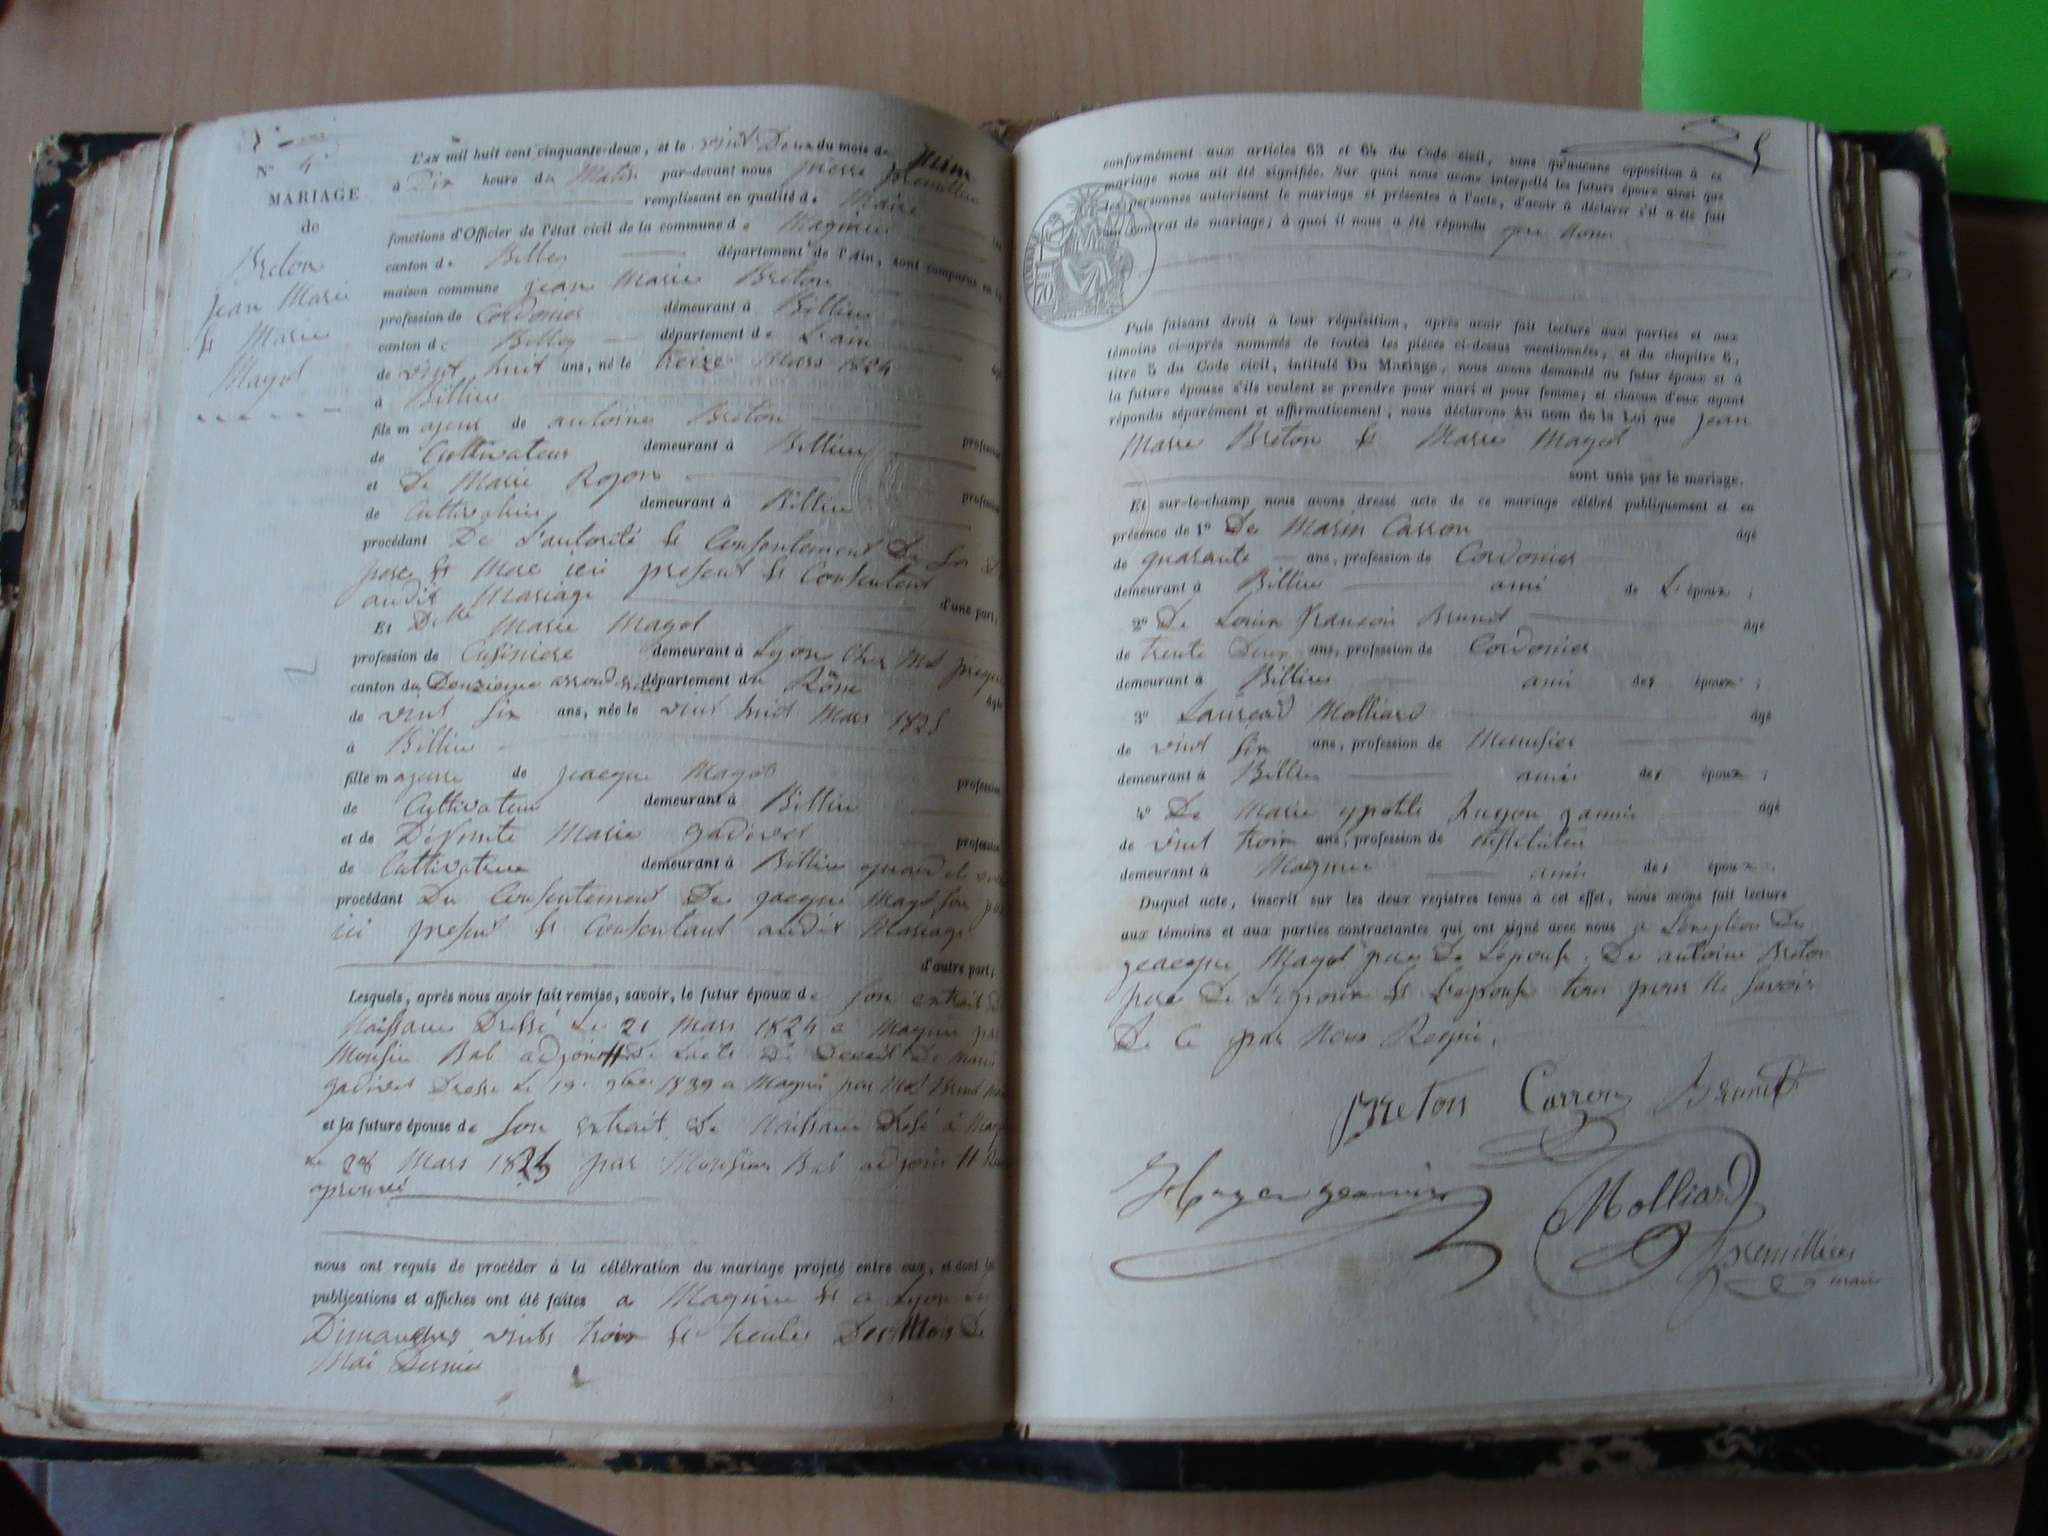 N° 4
MARIAGE
de
Breton
Jean Marie
et Marie
Magot
L'an mil huit cent cinquante-deux, et le vint Deux du mois de juin
à Dix heure du Matin par-devant nous pierre
remplissant en qualité de Maire
fonctions d'Officier de l'état civil de la commune de Magnieu
canton de Belley département de l'Ain, sont comparus en la
maison commune jean Marie Breton
profession de Cordonier demeurant à Billieu
canton de Belley département de L'ain
de vint huit ans, né le treize Mars 1824
à Billieu
fils majeur de antoine Breton
de Cultivateur demeurant à Billieu profession
et De Marie Rojon
de Cultivatrice demeurant à Billieu profession
procédant De L'autorité et Consentement De Son
pere et Mere ici present et Consentent
audit Mariage
d'une part;
Et Delle Marie Magot
profession de Cusiniere demeurant à Lyon Chez
canton du Deuzieme département du Rône
de vint six ans, née le vint huit Mars 1825
à Billieu
fille majeure de jeacque Magot
de Cultivateur demeurant à Billieu profession
et de Défunte Marie gadivet profession
de Cultivatrice demeurant à Billieu quand
procédant Du Consentement De jacque Magot son
ici present et Consentant audit Mariage
d'autre part;
Lesquels, après nous avoir fait remise, savoir, le futur époux de Son extrait de
Naissance Dressé Le 21 Mars 1824 a Magnieu par
Monsieur Bal adjoint De Lacte De Deceit De Marie
gadivet Dressé Le 19 9bre 1839 a Magnieu par
et la future épouse de Son extrait De Naissance Dressé à
Le 28 Mars 1825 par Monsieur Bal adjoint
aprouvé
nous ont requis de procéder à la célébration du mariage projeté entre eux, et dont les
publications et affiches ont été faites a Magnieu et a Lyon
Dimanches vints trois et trentes Du Mois De
Mai Dernier
5
conformément aux articles 63 et 64 du Code civil, sans qu'aucune opposition à ce
mariage nous ait été signifiée. Sur quoi nous avons interpellé les futurs époux ainsi que
les personnes autorisant le mariage et présentes à l'acte, d'avoir à déclarer s'il a été fait
un contrat de mariage; à quoi il nous a été répondu que
Puis faisant droit à leur réquisition, après avoir fait lecture aux parties et aux
témoins ci-après nommés de toutes les pièces ci-dessus mentionnées, et du chapitre 6,
titre 5 du Code civil, intitulé Du Mariage, nous avons demandé au futur époux et à
la future épouse s'ils veulent se prendre pour mari et pour femme; et chacun d'eux ayant
répondu séparément et affirmativement, nous déclarons au nom de la Loi que jean
Marie Breton et Marie Magot
sont unis par le mariage.
Et sur-le-champ nous avons dressé acte de ce mariage célébré publiquement et en
présence de 1° De Marin Carron âgé
de quarante ans, profession de Cordonier
demeurant à Billieu ami de L'époux;
2° De Louis françois Brunet âgé
de trente Deux ans, profession de Cordonier
demeurant à Billieu ami des époux;
3° Laurent Molliard âgé
de vint six ans, profession de Menusier
demeurant à Billieu ami des époux;
4° De Marie âgé
de vint trois ans, profession de
demeurant à Magnieu ami des époux.
Duquel acte, inscrit sur les deux registres tenus à cet effet, nous avons fait lecture
aux témoins et aux parties contractantes qui ont signé avec nous a L'exeption De
jeacque Magot pere De L'epouse. De antoine Breton
pere De L'epoux et L'epouse tous pour Ne Savoir
De Ce par Nous Requi.
Breton Carron Brunet
Molliard
maire